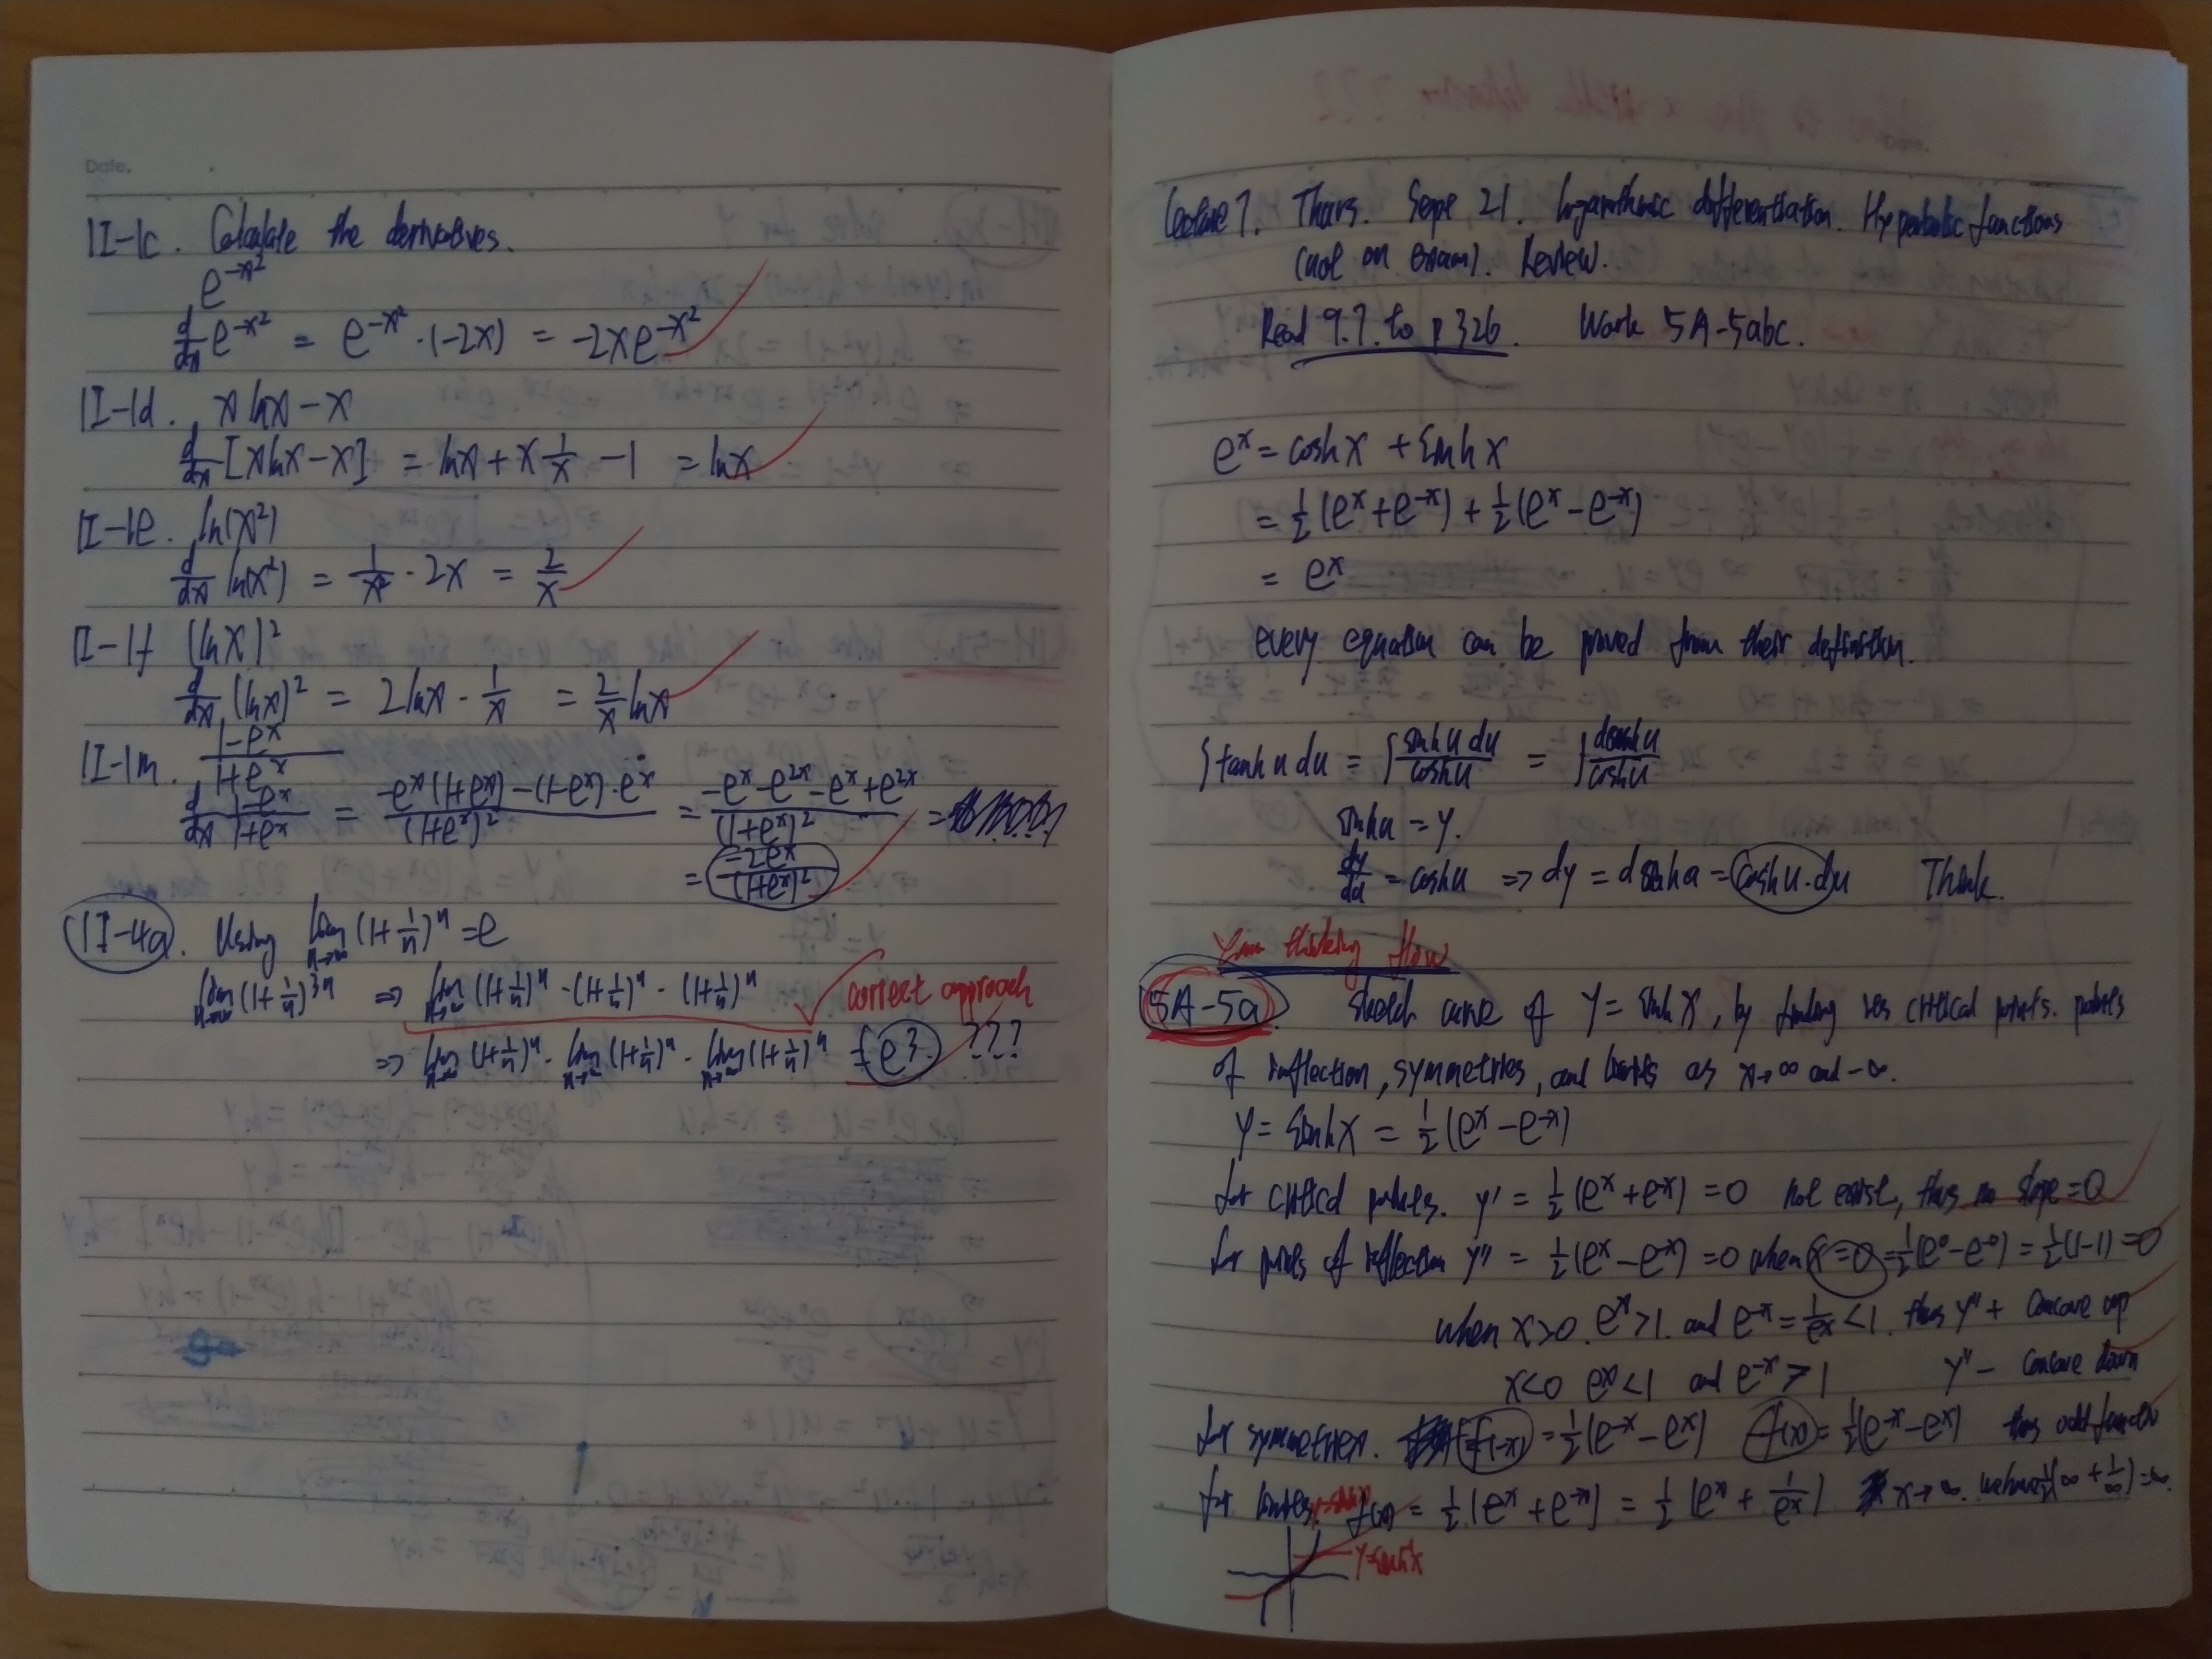 Date.
1I-1c. Calculate the derivatives.
e^{-x^2}
d/dx e^{-x^2} = e^{-x^2} · (-2x) = -2xe^{-x^2}
1I-1d. x ln x - x
d/dx [x ln x - x] = ln x + x 1/x - 1 = ln x
1I-1e. ln(x^2)
d/dx ln(x^2) = 1/x^2 · 2x = 2/x
1I-1f (ln x)^2
d/dx (ln x)^2 = 2 ln x · 1/x = 2/x ln x
1I-1m. (1-e^x)/(1+e^x)
d/dx (1-e^x)/(1+e^x) = (-e^x(1+e^x) - (1-e^x)·e^x)/(1+e^x)^2 = (-e^x - e^{2x} - e^x + e^{2x})/(1+e^x)^2 =
= (-2e^x)/(1+e^x)^2
1I-4a. Using lim_{n→∞} (1+1/n)^n = e
lim_{n→∞} (1+1/n)^{3n} ⇒ lim_{n→∞} (1+1/n)^n · (1+1/n)^n · (1+1/n)^n
correct approach
⇒ lim_{n→∞} (1+1/n)^n · lim_{n→∞} (1+1/n)^n · lim_{n→∞} (1+1/n)^n = e^3. ???
Date.
Lecture 7. Thurs. Sept 21. Logarithmic differentiation. Hyperbolic functions
(not on exam). Review.
Read 9.7. to p 326. Work 5A-5abc.
e^x = cosh x + sinh x
= 1/2 (e^x + e^{-x}) + 1/2 (e^x - e^{-x})
= e^x
every equation can be proved from their definition.
∫ tanh u du = ∫ (sinh u du)/(cosh u) = ∫ (d cosh u)/(cosh u)
sinh u = y.
dy/du = cosh u ⇒ dy = d sinh u = cosh u · du Think.
Your thinking flow
5A-5a. Sketch curve of y = sinh x, by finding its critical points. points
of inflection, symmetries, and limits as x→∞ and -∞.
y = sinh x = 1/2 (e^x - e^{-x})
for critical points. y' = 1/2 (e^x + e^{-x}) = 0 not exist, thus no slope = 0
for points of inflection y'' = 1/2 (e^x - e^{-x}) = 0 when x=0 = 1/2 (e^0 - e^{-0}) = 1/2 (1-1) = 0
when x>0. e^x >1. and e^{-x} = 1/e^x <1. thus y'' + concave up
x<0 e^x <1 and e^{-x} > 1 y'' - concave down
for symmetries. f(-x) = 1/2 (e^{-x} - e^x) -f(x) = 1/2 (e^{-x} - e^x) thus odd function
for limits. f(x) = 1/2 (e^x + e^{-x}) = 1/2 (e^x + 1/e^x) x→∞. we have 1/2 (∞ + 1/∞) = ∞.
y = sinh x